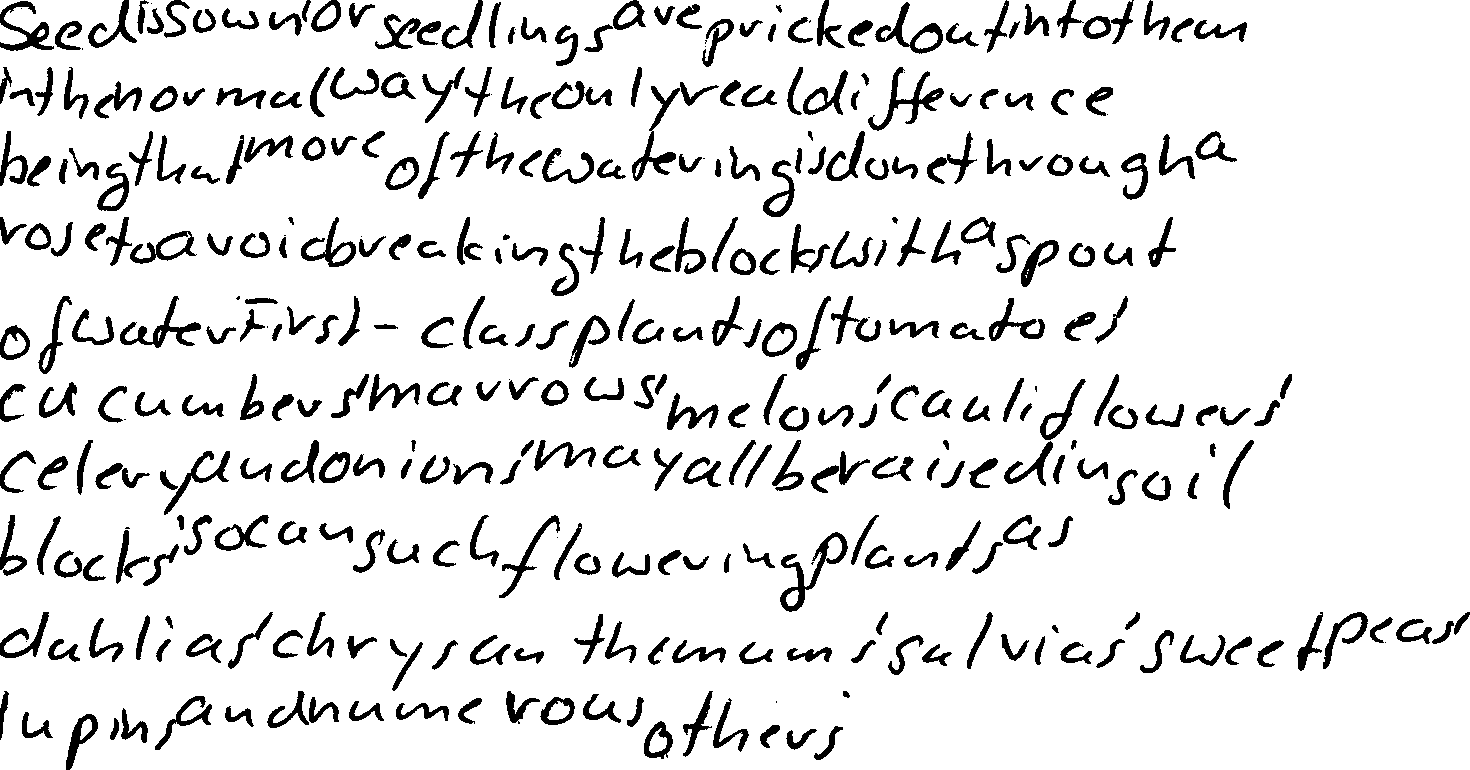 Seed is sown, or seedlings are pricked out into them
in the normal way, the only real difference
being that more of the watering is done through a
rose to avoid breaking the blocks with a spout
of water. First-class plants of tomatoes,
cucumbers, marrows, melons, cauliflowers,
celery and onions, may all be raised in soil
blocks, so can such flowering plants as
dahlias, chrysanthemums, salvias, sweet peas,
lupins and numerous others